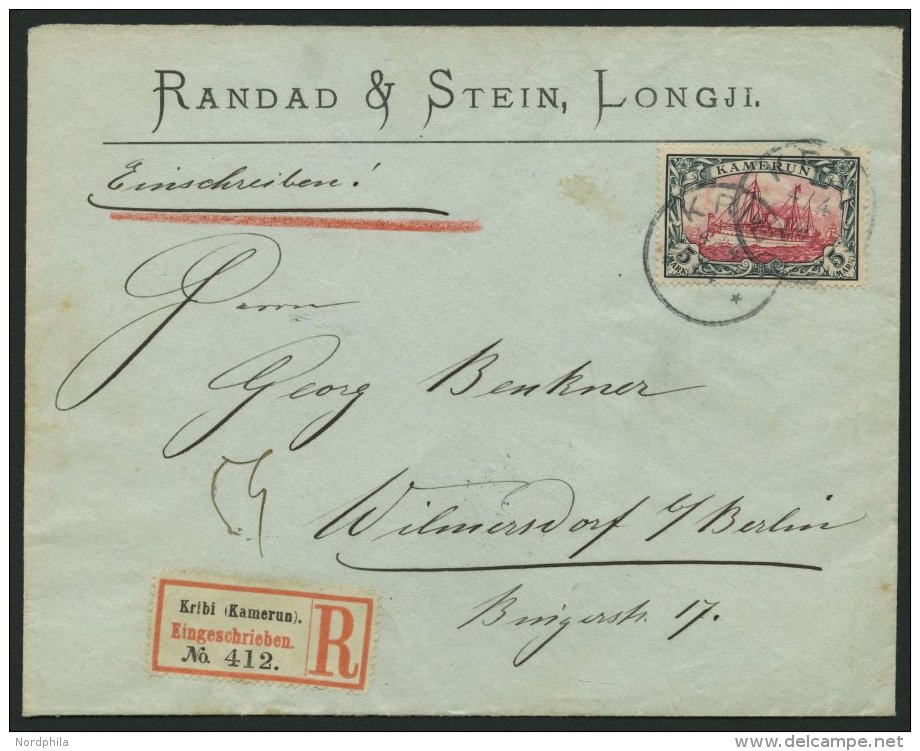 RANDAD & STEIN, LONGJI.
Einschreiben!
KAMERUN
5 MARK 5 MARK
KR
Herrn
Georg Benkner
Wilmersdorf b/Berlin
Bingerstr. 17.
Kribi (Kamerun).
Eingeschrieben.
No. 412.
R
Nordphila
www.delcampe.net